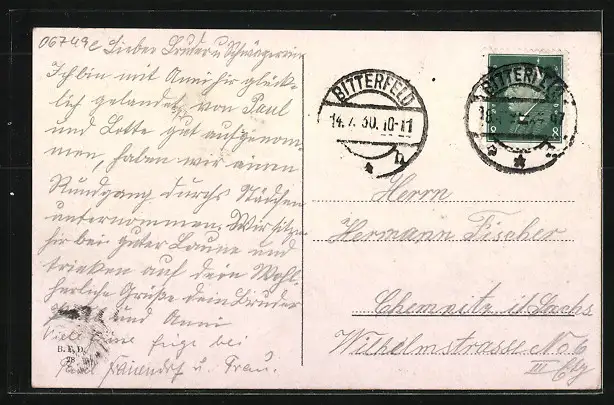 067492
Lieber Bruder u Schwägerin
Ich bin mit Anni hir glück-
lich gelandet, von Paul
und Lotte gut aufgenom-
men, haben wir einen
Rundgang durchs Städchen
unternommen. Wir sitzen
hir bei guter Laune und
trinken auf dem Wohl.
herliche Grüße dein Bruder
und Anni
Viele Grüße bei
u. Frau.
B. F. D.
BITTERFELD
14.7.30. 10-11
BITTERFELD
8 8
Herrn
Hermann Fischer
Chemnitz i/Sachs
Wilhelmstrasse No 6
III Etg